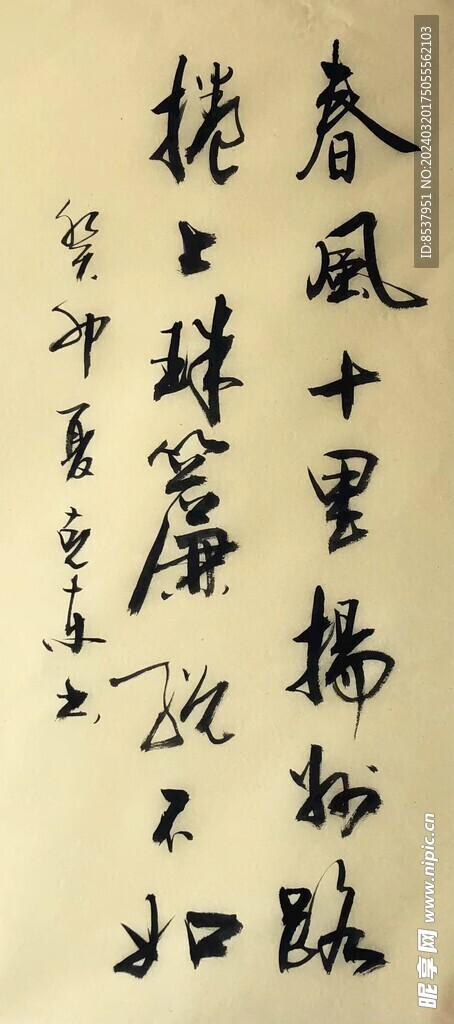 春風十里揚州路
捲上珠簾總不如
癸卯夏克东书
ID:8537951 NO:20240320175055562103
昵享网 www.nipic.cn